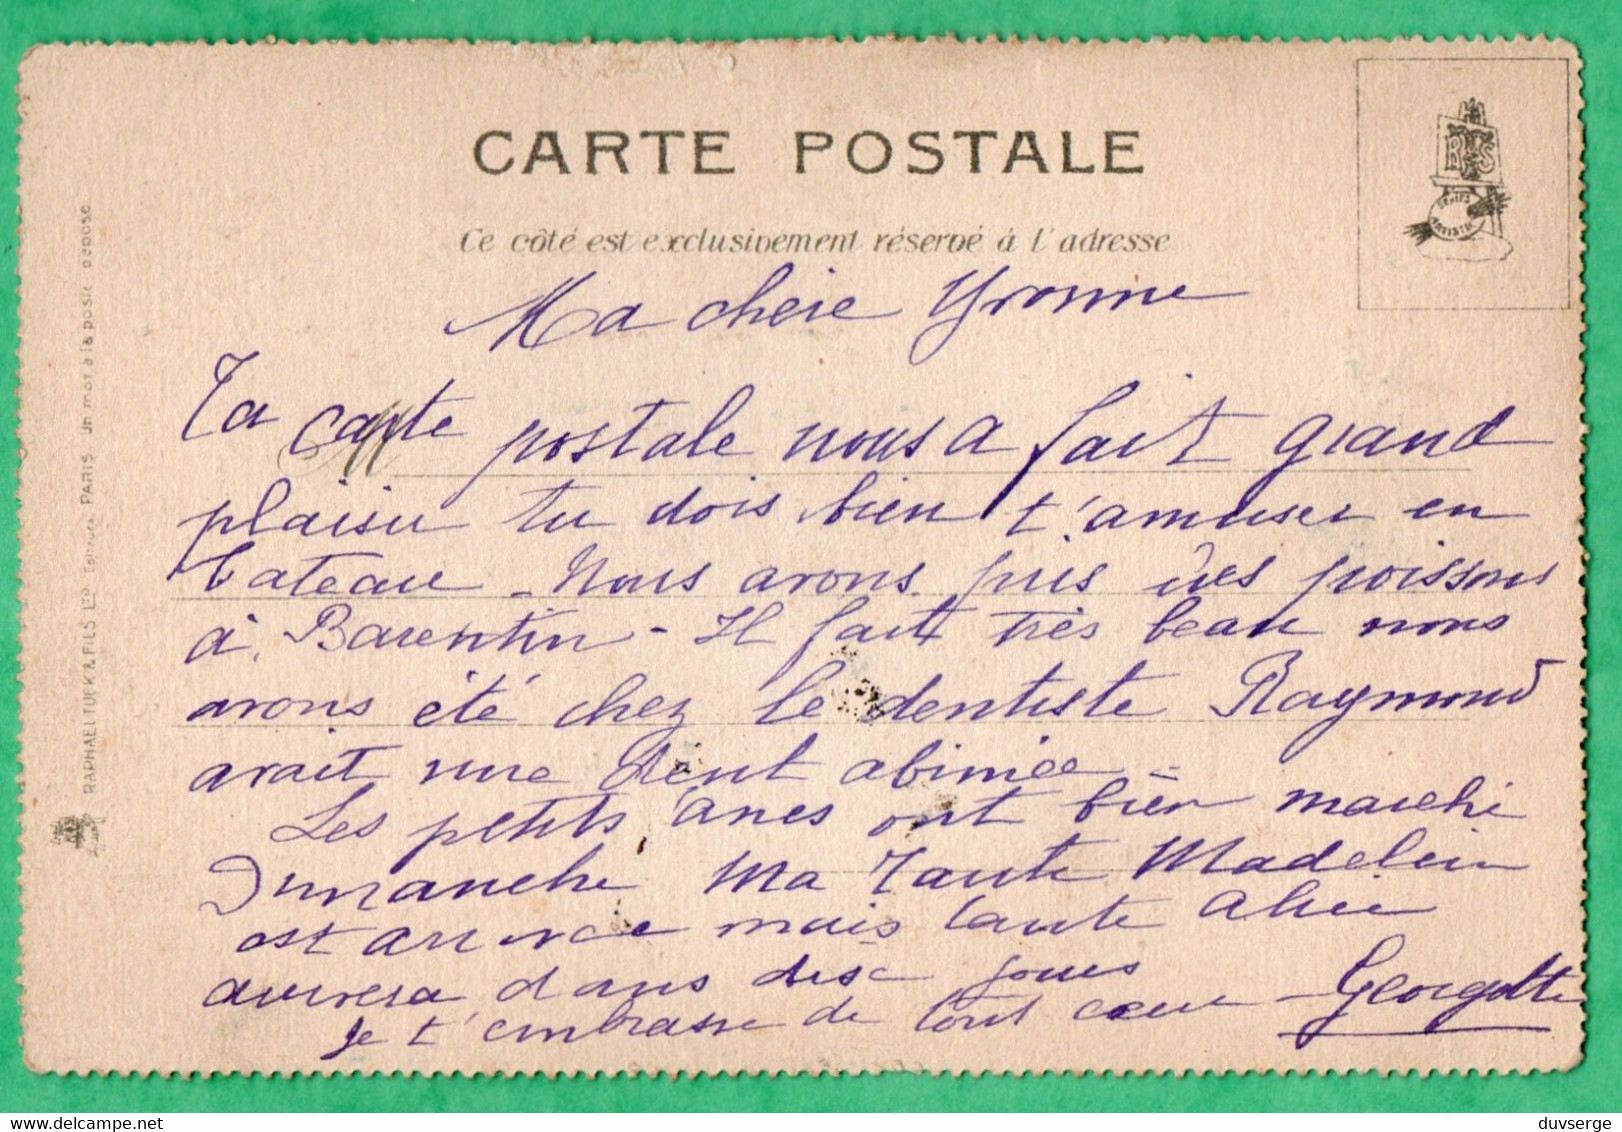 CARTE POSTALE
Ce côté est exclusivement réservé à l'adresse
SÉRIES ARTISTIC
Ma chère Yvonne
Ta carte postale nous a fait grand
plaisir tu dois bien t'amuser en
bateau - Nous avons pris des poissons
à Barentin - Il fait très beau nous
avons été chez le dentiste Raymond
avait une dent abimée -
Les petits ânes ont bien marché
Dimanche Ma Tante Madelein
est arrivée mais tante Alice
arrivera dans jours
Je t'embrasse de tout coeur - Georgette
RAPHAEL TUCK & FILS LTD Editeurs PARIS Un mot à la poste déposé
duvserge
delcampe.net